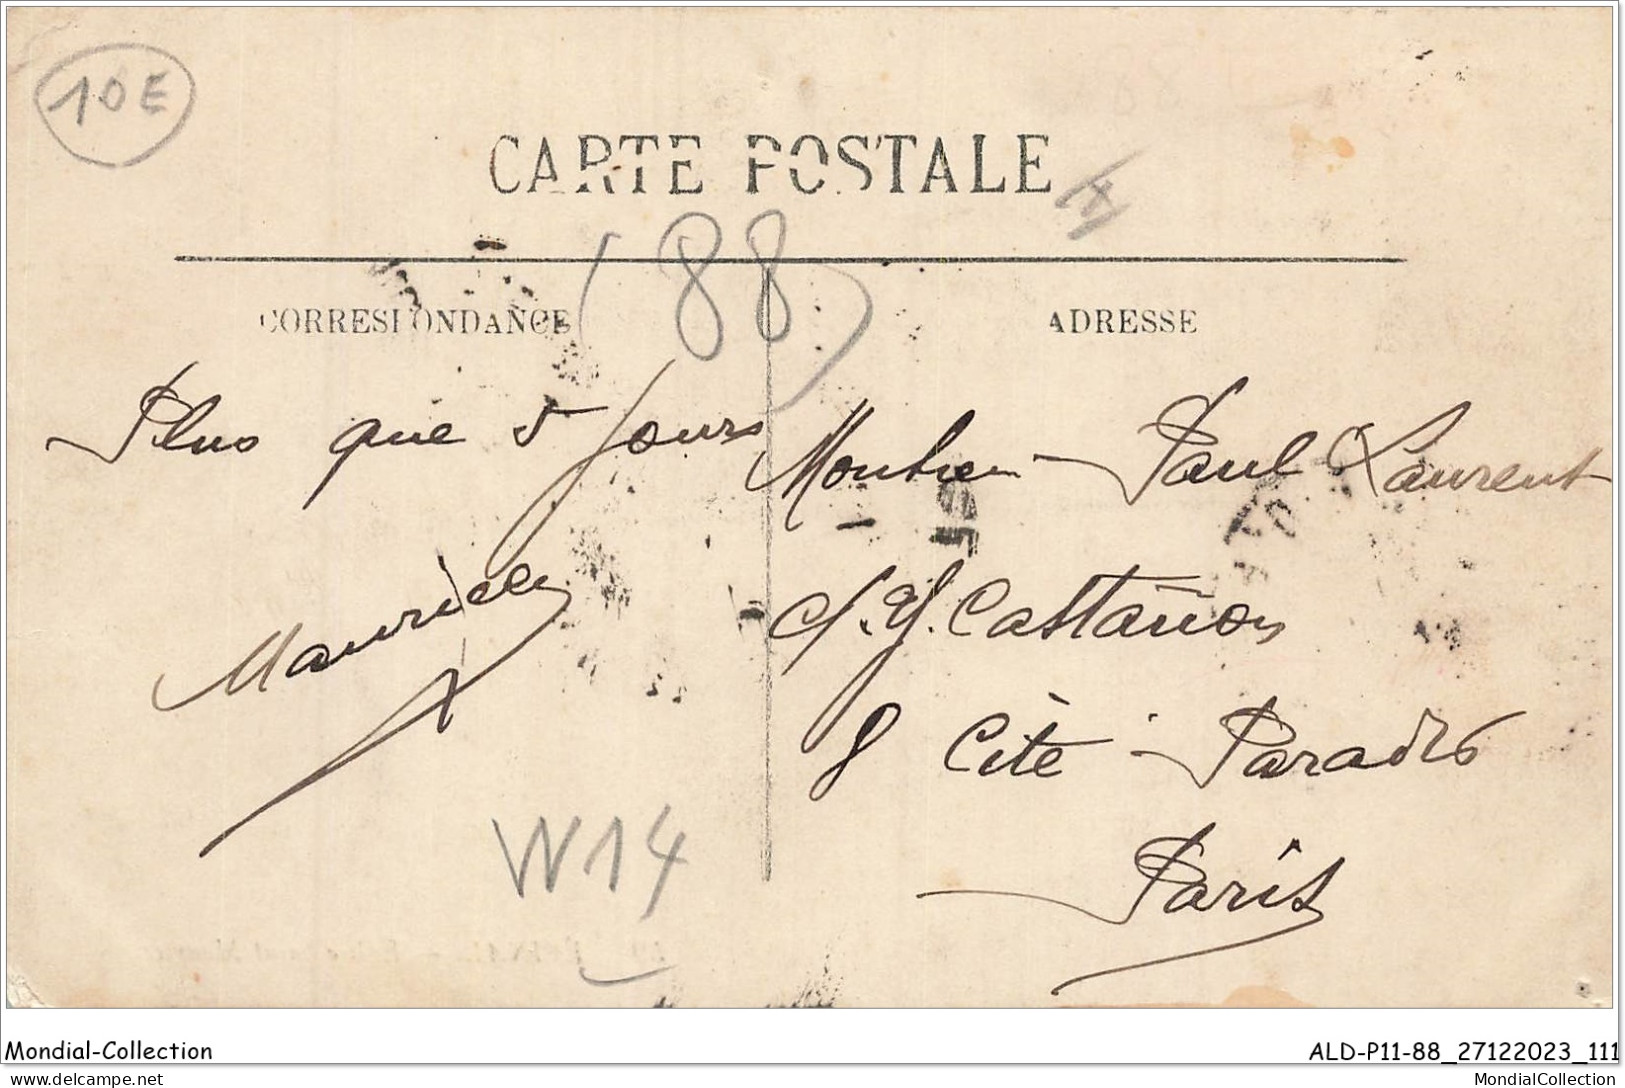 10E
CARTE POSTALE
(88)
CORRESPONDANCE
ADRESSE
Plus que 5 Jours
Maurice
Monsieur Paul Laurent
Castanon
8 Cité Paradis
Paris
W14
Mondial-Collection
ALD-P11-88_27122023_111
www.delcampe.net
MondialCollection